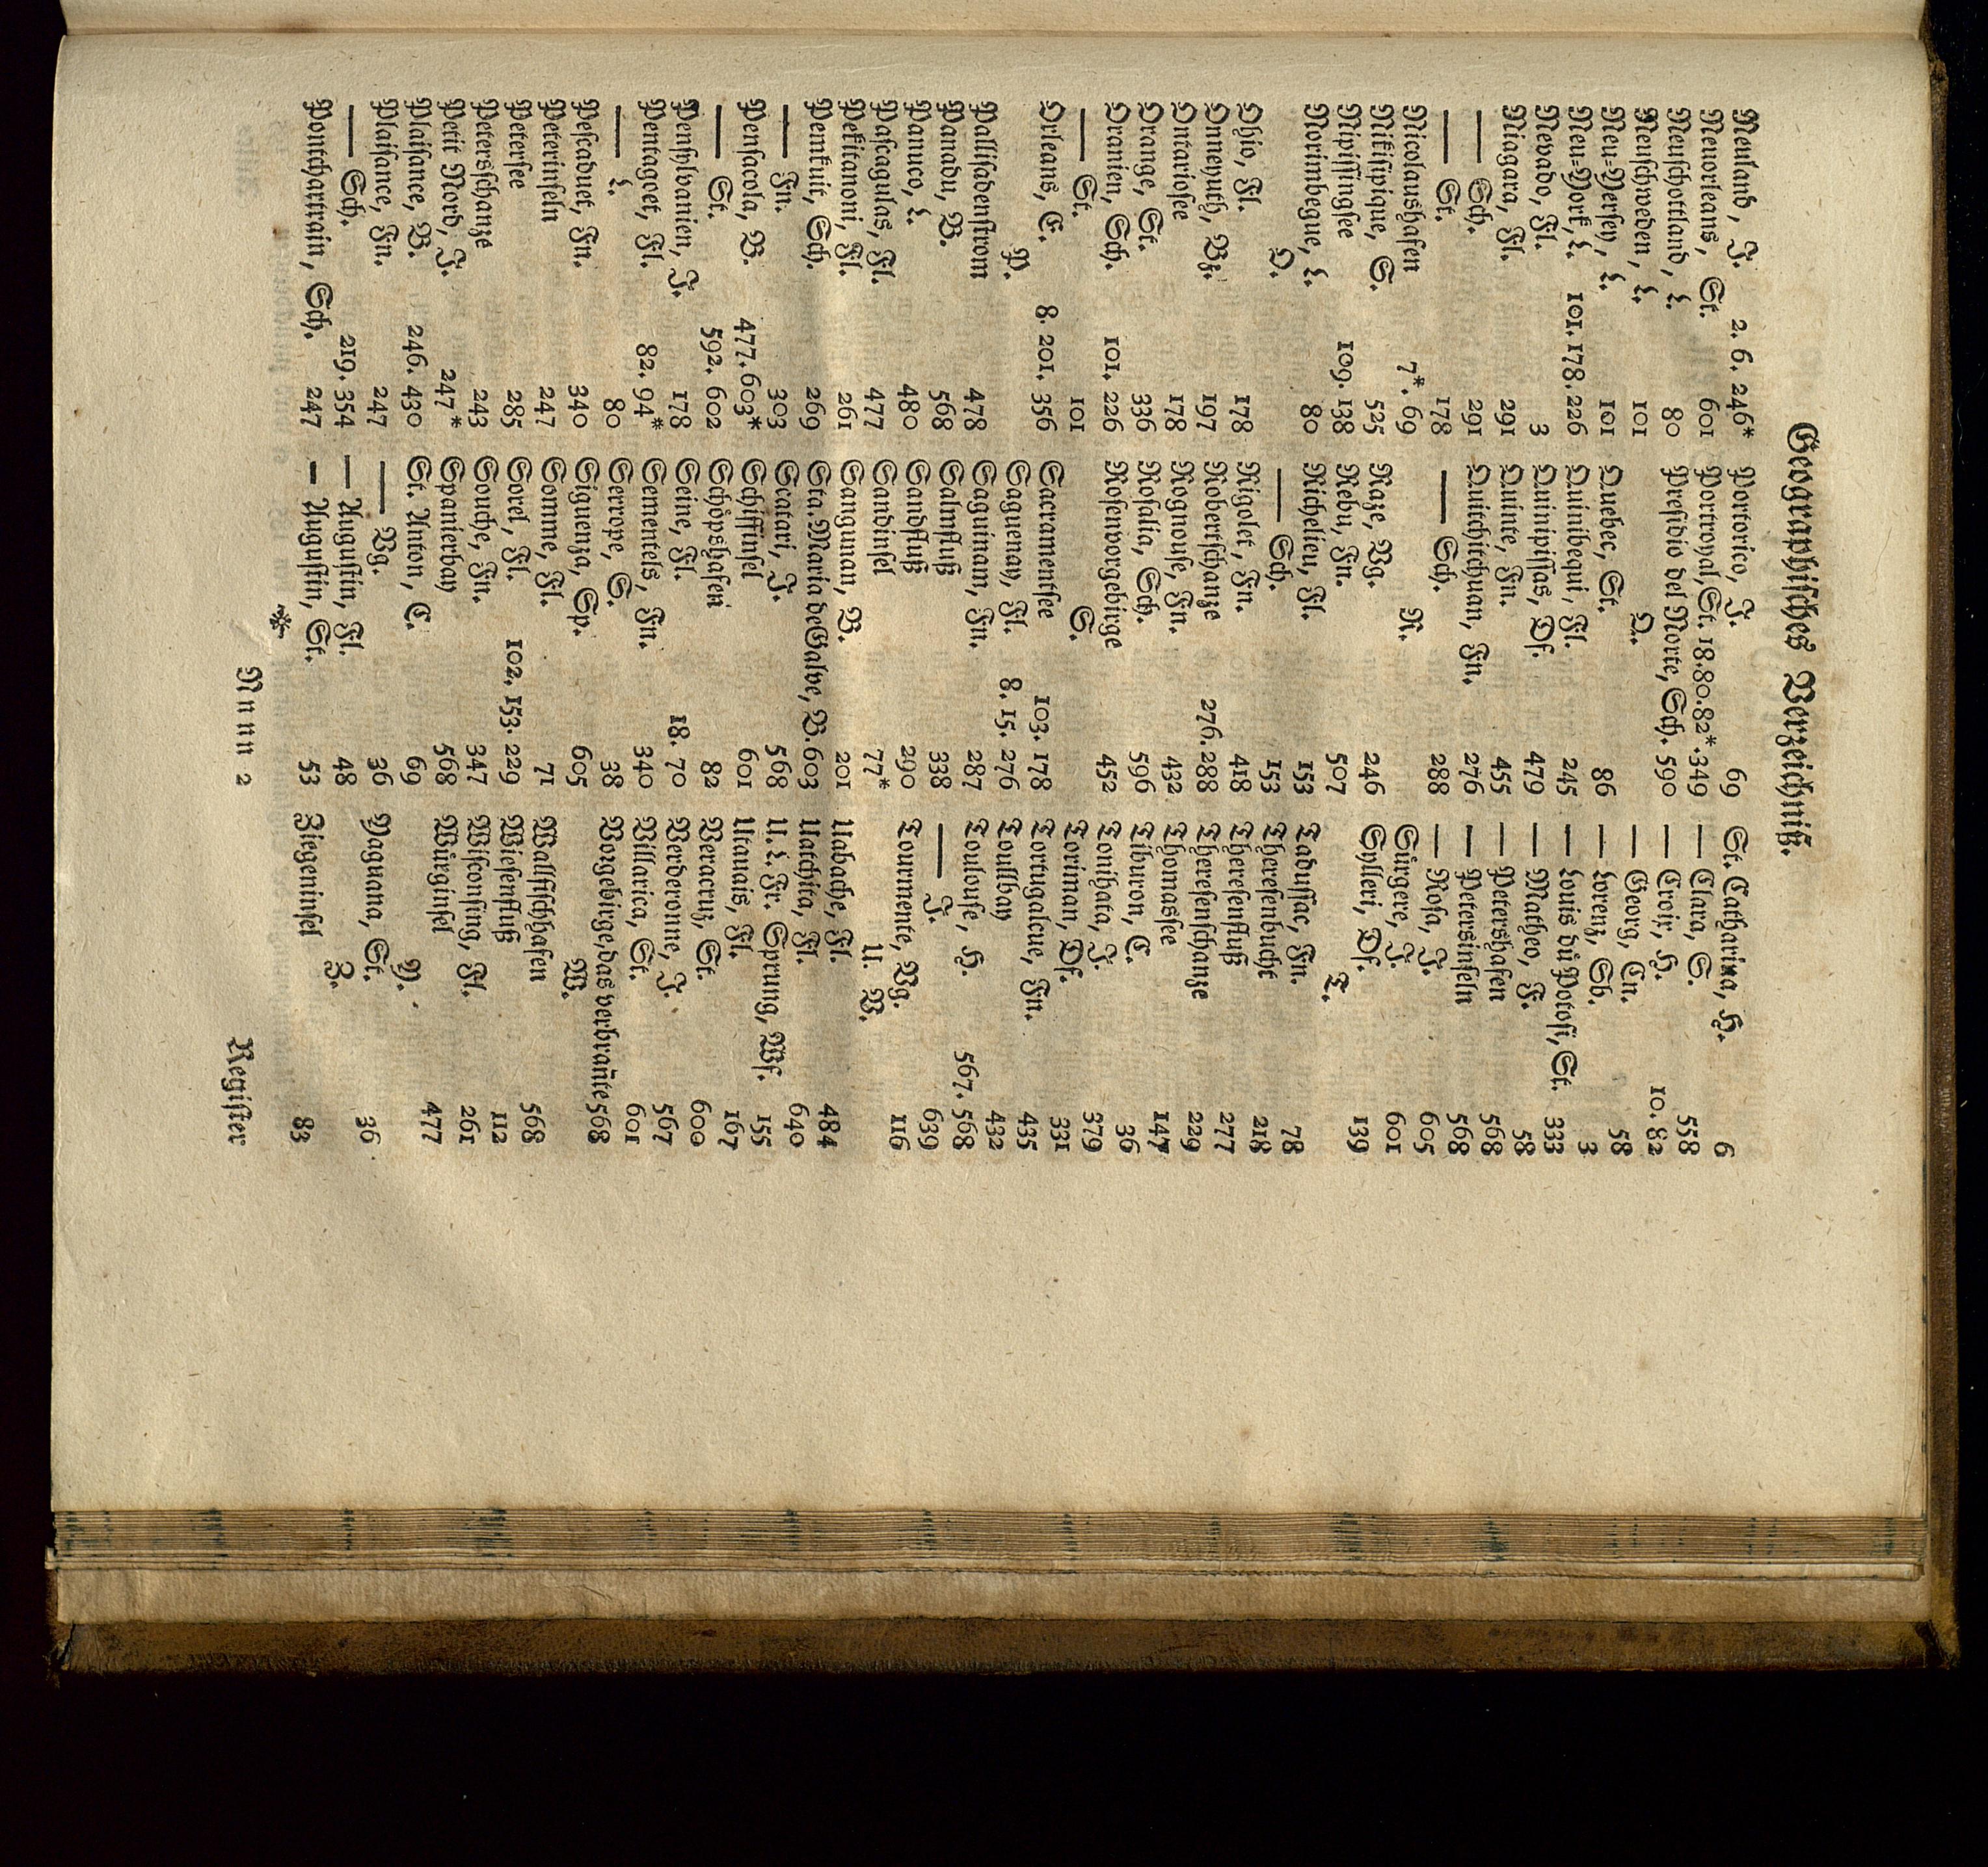 Geographisches Verzeichniß.
Neuland, J. 2. 6. 246*
Neuorleans, St. 601
Neuschottland, L. 80
Neuschweden, L. 101
Neu=Yersey, L. 101
Neu=York, L. 101. 178. 226
Nevado, Fl. 3
Niagara, Fl. 291
—— Sch. 291
—— St. 178
Nicolaushafen 7*. 69
Nikisipique, S. 525
Nipissingsee 109. 138
Norimbegue, L. 80
O.
Ohio, Fl. 178
Onneyuth, Vk. 197
Ontariosee 178
Orange, St. 336
Oranien, Sch. 101. 226
—— St. 101
Orleans, C. 8. 201. 356
P.
Pallisadenstrom 478
Panadu, B. 568
Panuco, L. 480
Pascagulas, Fl. 477
Pekitanoni, Fl. 261
Pemkuit, Sch. 269
—— Jn. 303
Pensacola, B. 477. 603*
—— St. 592. 602
Pensylvanien, J. 178
Pentagoet, Fl. 82. 94*
—— L. 80
Pescaduet, Jn. 340
Peterinseln 247
Petersee 285
Petersschanze 243
Petit Nord, J. 247*
Plaisance, B. 246. 430
Plaisance, Jn. 247
—— Sch. 219. 354
Pontchartrain, Sch. 247
Portorico, J. 69
Portroyal, St. 18. 80. 82*. 349
Presidio del Norte, Sch. 590
Q.
Quebec, St. 86
Quinibequi, Fl. 245
Quinipissas, Df. 479
Quinte, Jn. 455
Quitchitchuan, Jn. 276
—— Sch. 288
R.
Raze, Vg. 246
Rebu, Jn. 507
Richelieu, Fl. 153
—— Sch. 153
Rigolet, Jn. 418
Robertschanze 276. 288
Rognouse, Jn. 432
Rosalia, Sch. 596
Rosenvorgebirge 452
S.
Sacramentsee 103. 178
Saguenay, Fl. 8. 15. 276
Saguinam, Jn. 287
Salmfluß 338
Sandfluß 290
Sandinsel 77*
Sangunan, B. 201
Sta. Maria de Galve, B. 603
Scatari, J. 568
Schiffinsel 601
Schöpshafen 82
Seine, Fl. 18. 70
Sementels, Jn. 340
Serrope, S. 38
Siguenza, Sp. 605
Somme, Fl. 71
Sorel, Fl. 102. 153. 229
Souche, Jn. 347
Spanierbay 568
St. Anton, C. 69
—— Vg. 36
— Augustin, Fl. 48
— Augustin, St. 53
St. Catharina, H. 6
— Clara, S. 558
— Croix, H. 10. 82
— Georg, Cn. 58
— Lorenz, Sb. 3
— Louis dü Potosi, St. 333
— Matheo, F. 58
— Petershafen 568
— Petersinseln 568
— Rosa, J. 605
Sürgere, J. 601
Sylleri, Df. 139
T.
Tadussac, Jn. 78
Theresenbucht 218
Theresenfluß 277
Theresenschanze 229
Thomassee 147
Tiburon, C. 36
Tonihata, J. 379
Toriman, Df. 331
Tortugalcue, Jn. 435
Toullbay 432
Toulouse, H. 567. 568
—— J. 639
Tourmente, Vg. 116
U. V.
Uabache, Fl. 484
Uatchita, Fl. 640
U. L. Fr. Sprung, Wf. 155
Utauais, Fl. 167
Veracruz, St. 600
Verderonne, J. 567
Villarica, St. 601
Vorgebirge, das verbrañte 568
W.
Wallfischhafen 568
Wiesenfluß 112
Wisconsing, Fl. 261
Würginsel 477
Y.
Yaguana, St. 36
Z.
Ziegeninsel 83
Nnnn 2
Register